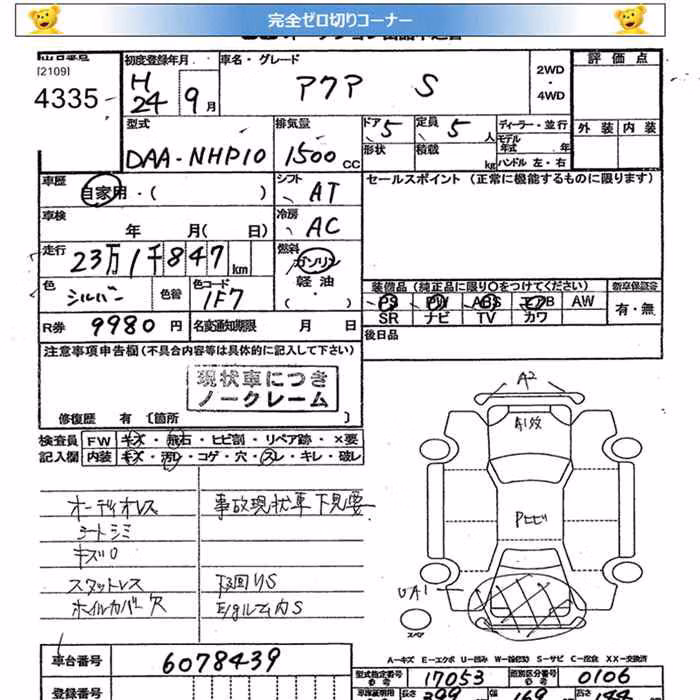 完全ゼロ切りコーナー
[2109]
4335
初度登録年月
H
24 9月
車名・グレード
アクア S
2WD
・
4WD
評価点
外装 内装
型式
DAA-NHP10
排気量
1500 CC
ドア 5
定員 5 人
形状
積載 kg
ディーラー・並行
モデル年式 年
ハンドル 左・右
車歴
自家用・( )
シフト
AT
セールスポイント (正常に機能するものに限ります)
車検
年 月( 日)
冷房
AC
走行
23万1千847km
燃料
ガソリン
軽油
( ・ )
色
シルバー
色替
色コード
1F7
装備品 (純正品に限り○をつけてください)
PS PW ABS エアB AW
SR ナビ TV カワ
新車保証書
有・無
R券 9980円
名変通知期限 月 日
後日品
注意事項申告欄(不具合内容等は具体的に記入して下さい)
現状車につき
ノークレーム
修復歴 有 〔箇所 〕
検査員
記入欄
FW キズ・飛石・ヒビ割・リペア跡・×要
内装 キズ・汚レ・コゲ・穴・スレ・キレ・破レ
オーディオレス
シートシミ
キズ
スタットレス
ホイルカバー欠
事故現状車下見要
下回りS
E/gルーム内S
A2
A1
Pヒビ
UA1
スペア
A-キズ E-エクボ U-凹み W-波(恕) S-サビ C-腐食 XX-交換済
車台番号 6078439
登録番号
型式指定番号 17053
類別区分番号 0106
長さ 399
幅 169
高さ 144